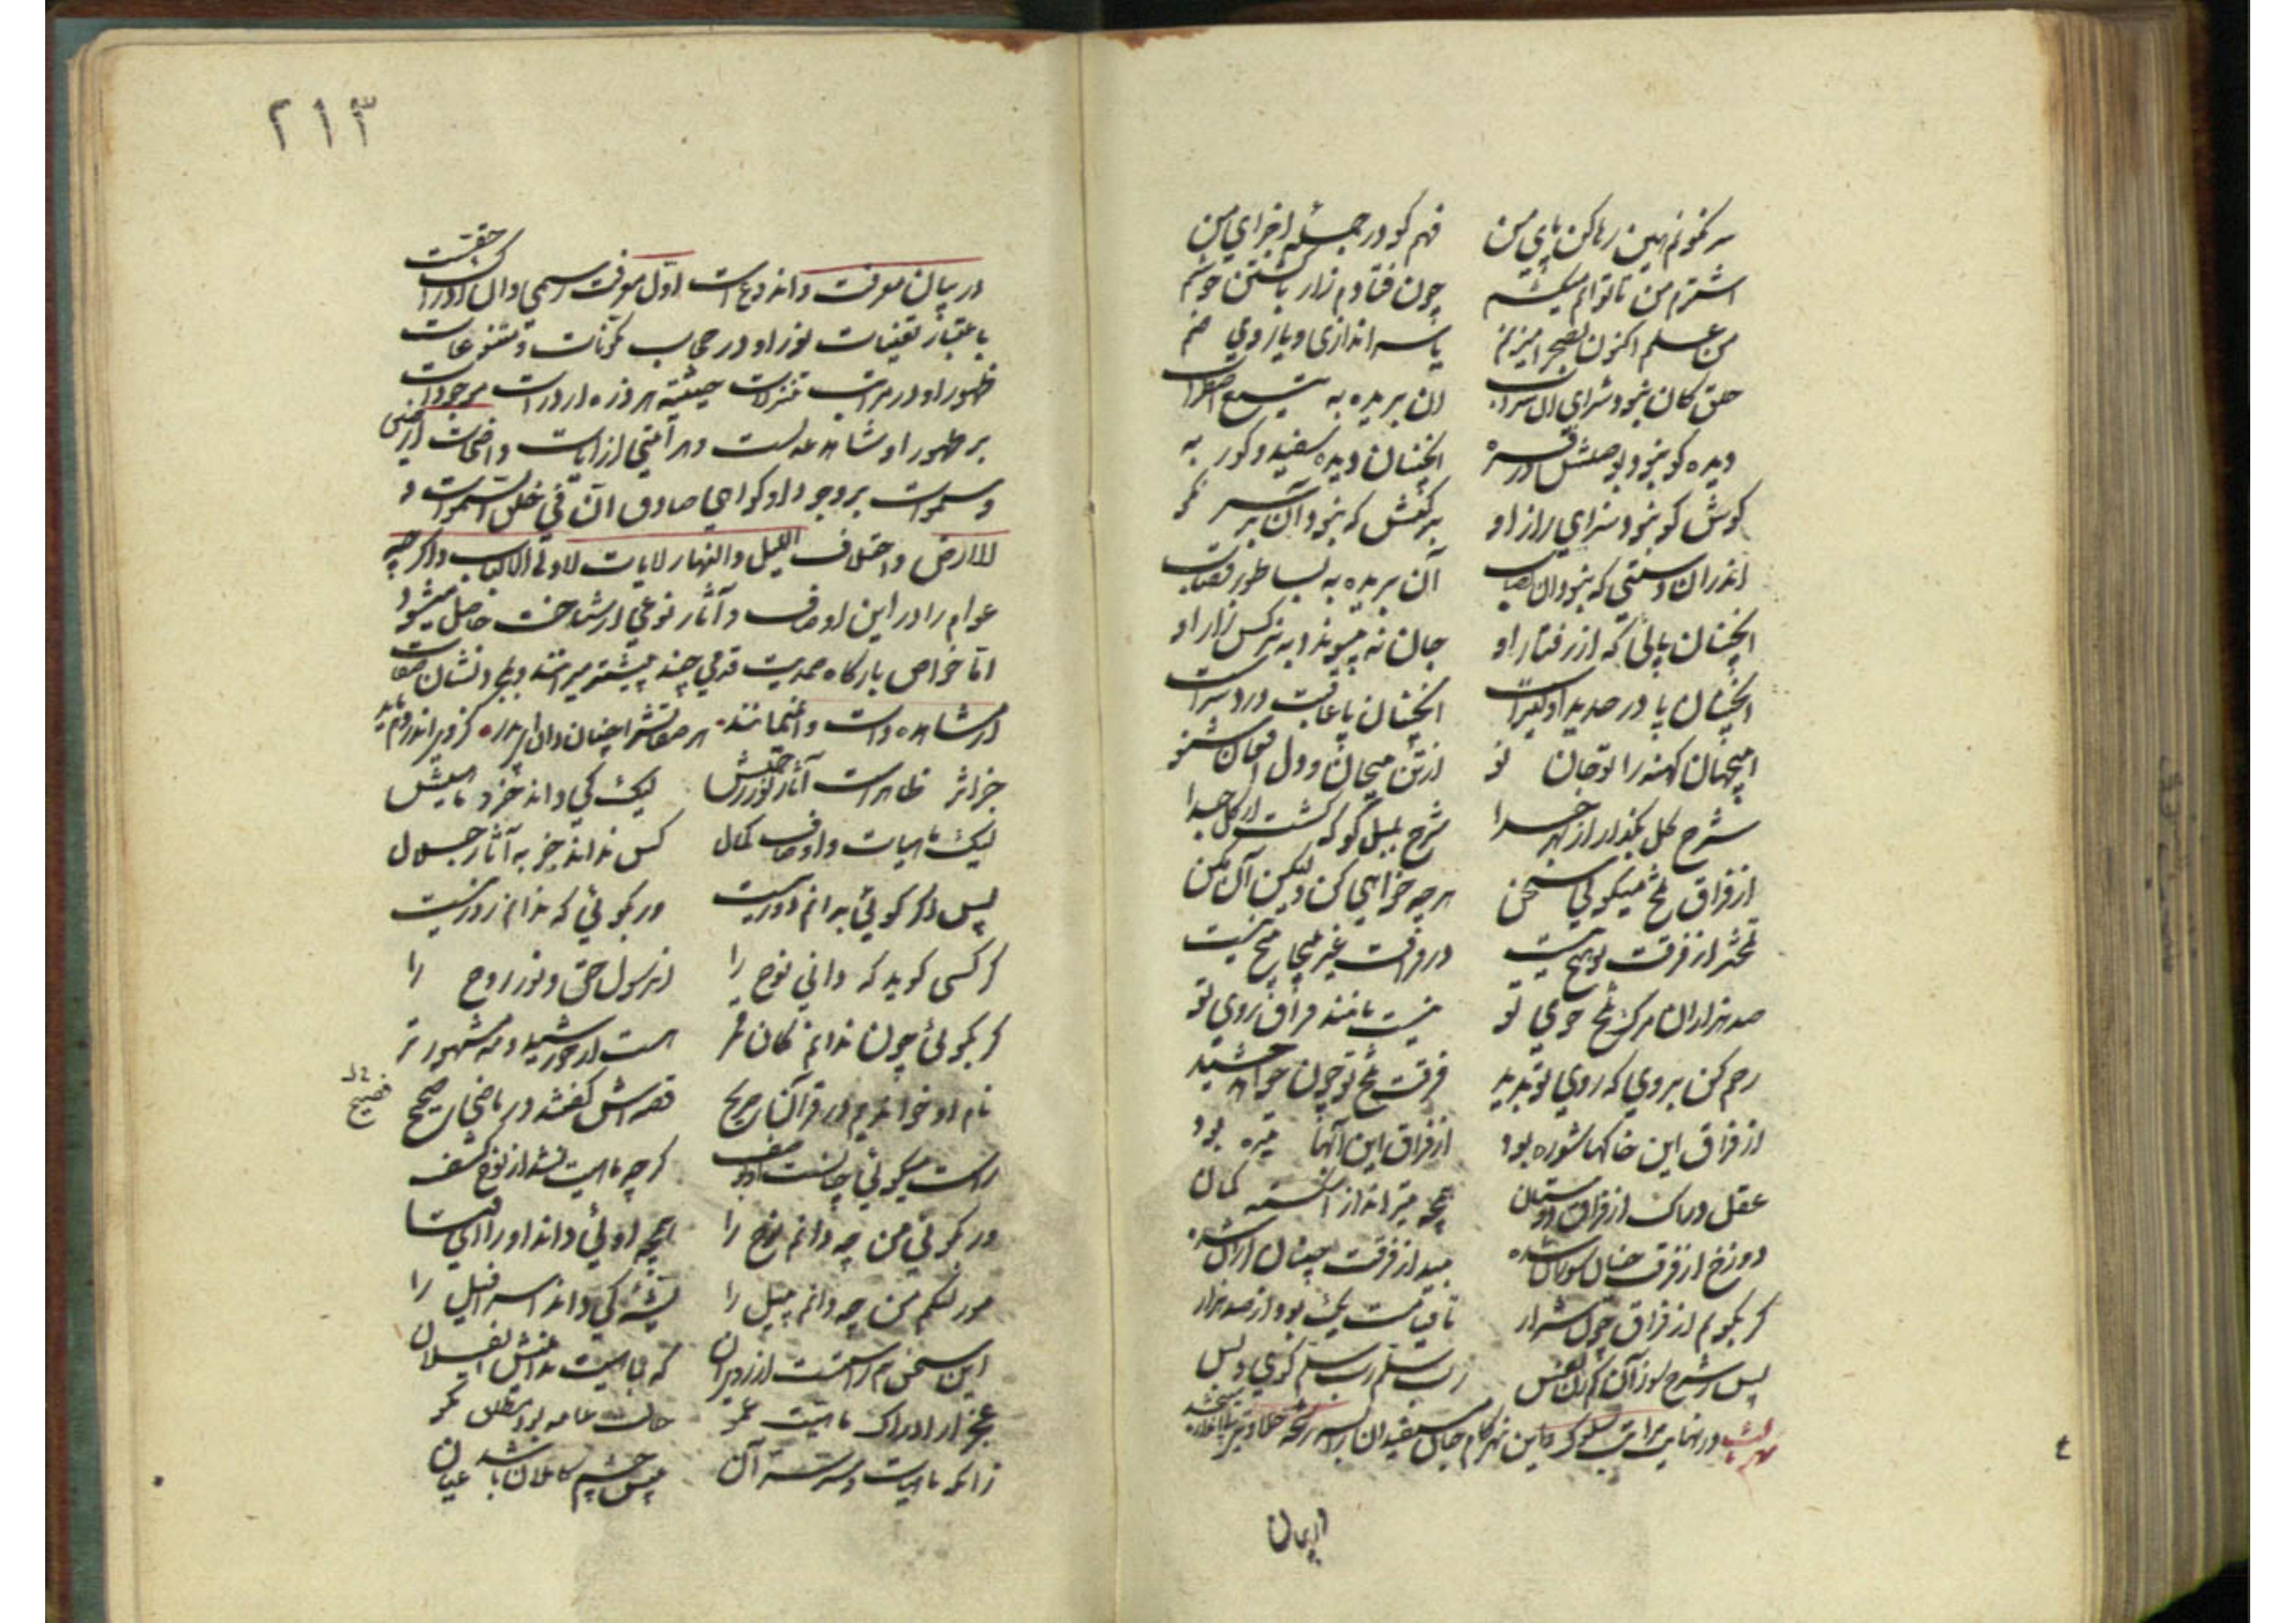 سر نگونم هین رها کن پای من   فهم کو در جمله اجزای من
اشترم من تا توانم میکشم   چون فتادم زار با کشتن خوشم
من علم اکنون بصحرا میزنم   یا سر اندازی و یا روی صنم
حلق کان نبود سزای آن شراب   آن بریده به
دیده کو نبود ز وصلش در فره   انچنان دیده سفید و کور به
کوش کو نبود سزای راز او   برکنش که نبود آن بر سر نکو
اندران دستی که نبود آن نصاب   آن بریده به بساطور قصاب
انچنان پائی که از رفتار او   جان نه پیوندد به نرکس زار او
انچنان پا در حدید اولیترست   انچنان پا عاقبت درد سرست
ای جهان کهنه را تو جان نو   از تن بیجان و دل افغان شنو
شرح کل بکذار از بهر خدا   شرح بلبل کو که کشت از کل جدا
از فراق تلخ میکوئی سخن   هر چه خواهی کن ولیکن آن مکن
تلختر از فرقت تو هیچ نیست   در فراقت غیر پیچاپیچ نیست
صد هزاران مرک تلخ از خوی تو   نیست مانند فراق روی تو
رحم کن بر وی که روی تو بدید   فرقت تلخ تو چون خواهد کشید
از فراق این خاکها شوره بود   از فراق این آبها تیره بود
عقل دراک از فراق دوستان   همچو تیر انداز اشکسته کمان
دوزخ از فرقت چنان سوزان شده   بید از فرقت چنان لرزان شده
کر بکویم از فراق چون شرار   تا قیامت یک بود از صد هزار
پس ز شرح سوز آن کم زن نفس   رب سلم رب سلم کوی و بس
در نهایت مراتب سلوک
ایمان
۲۱۳
در بیان معرفت و آن دو نوع است اول معرفت رسمی و آن ادراک حقیقت
باعتبار تعینات نور او در حجاب مکونات و تنوعات
ظهور او در مراتب تنزلات حیثیة هر ذره از ذرات موجودات
بر ظهور او شاهد عدلست و هر آیتی از آیات واضحات ارضی
و سموات بر وجود او کواهی صادق ان فی خلق السموات و
الارض و اختلاف اللیل و النهار لایات لاولی الالباب و اکرچه
عوام را در این اوصاف و آثار نوعی از شناخت حاصل میشود
اما خواص بارکاه صمدیت قدمی چند پیشتر میراند و بجز نشان صفات
از مشاهده ذات وانمیمانند هر صفاتش را چنان دان ای پسر کز وی اندر وهم ناید
جز اثر   ظاهرست آثار نور رحمتش   لیک کی داند خرد ماهیتش
لیک ماهیات و اوصاف کمال   کس نداند جز به آثار جلال
پس اکر کوئی بدانم دور نیست   ور بکوئی که ندانم زور نیست
کر کسی کوید که دانی نوح را   آن رسول حق و نور روح را
کر بکوئی چون ندانم کان قمر   هست از خورشید و مه مشهورتر
نام او خواندیم در قرآن صریح   قصه اش کفتند در ماضی صحیح
فصیح
راست میکوئی چنانست از وصف   کرچه ماهیت نشد از نوح کشف
ور بکوئی من چه دانم نوح را   همچو اوئی داند او را ای فتا
مور لنکم من چه دانم پیل را   پشه کی داند اسرافیل را
این سخن هم راستست از روی آن   که بماهیت ندانیش ای فلان
عجز از ادراک ماهیت عمو   حالت عامه بود مطلق مکو
زانکه ماهیات و سر سر آن   پیش چشم کاملان باشد عیان